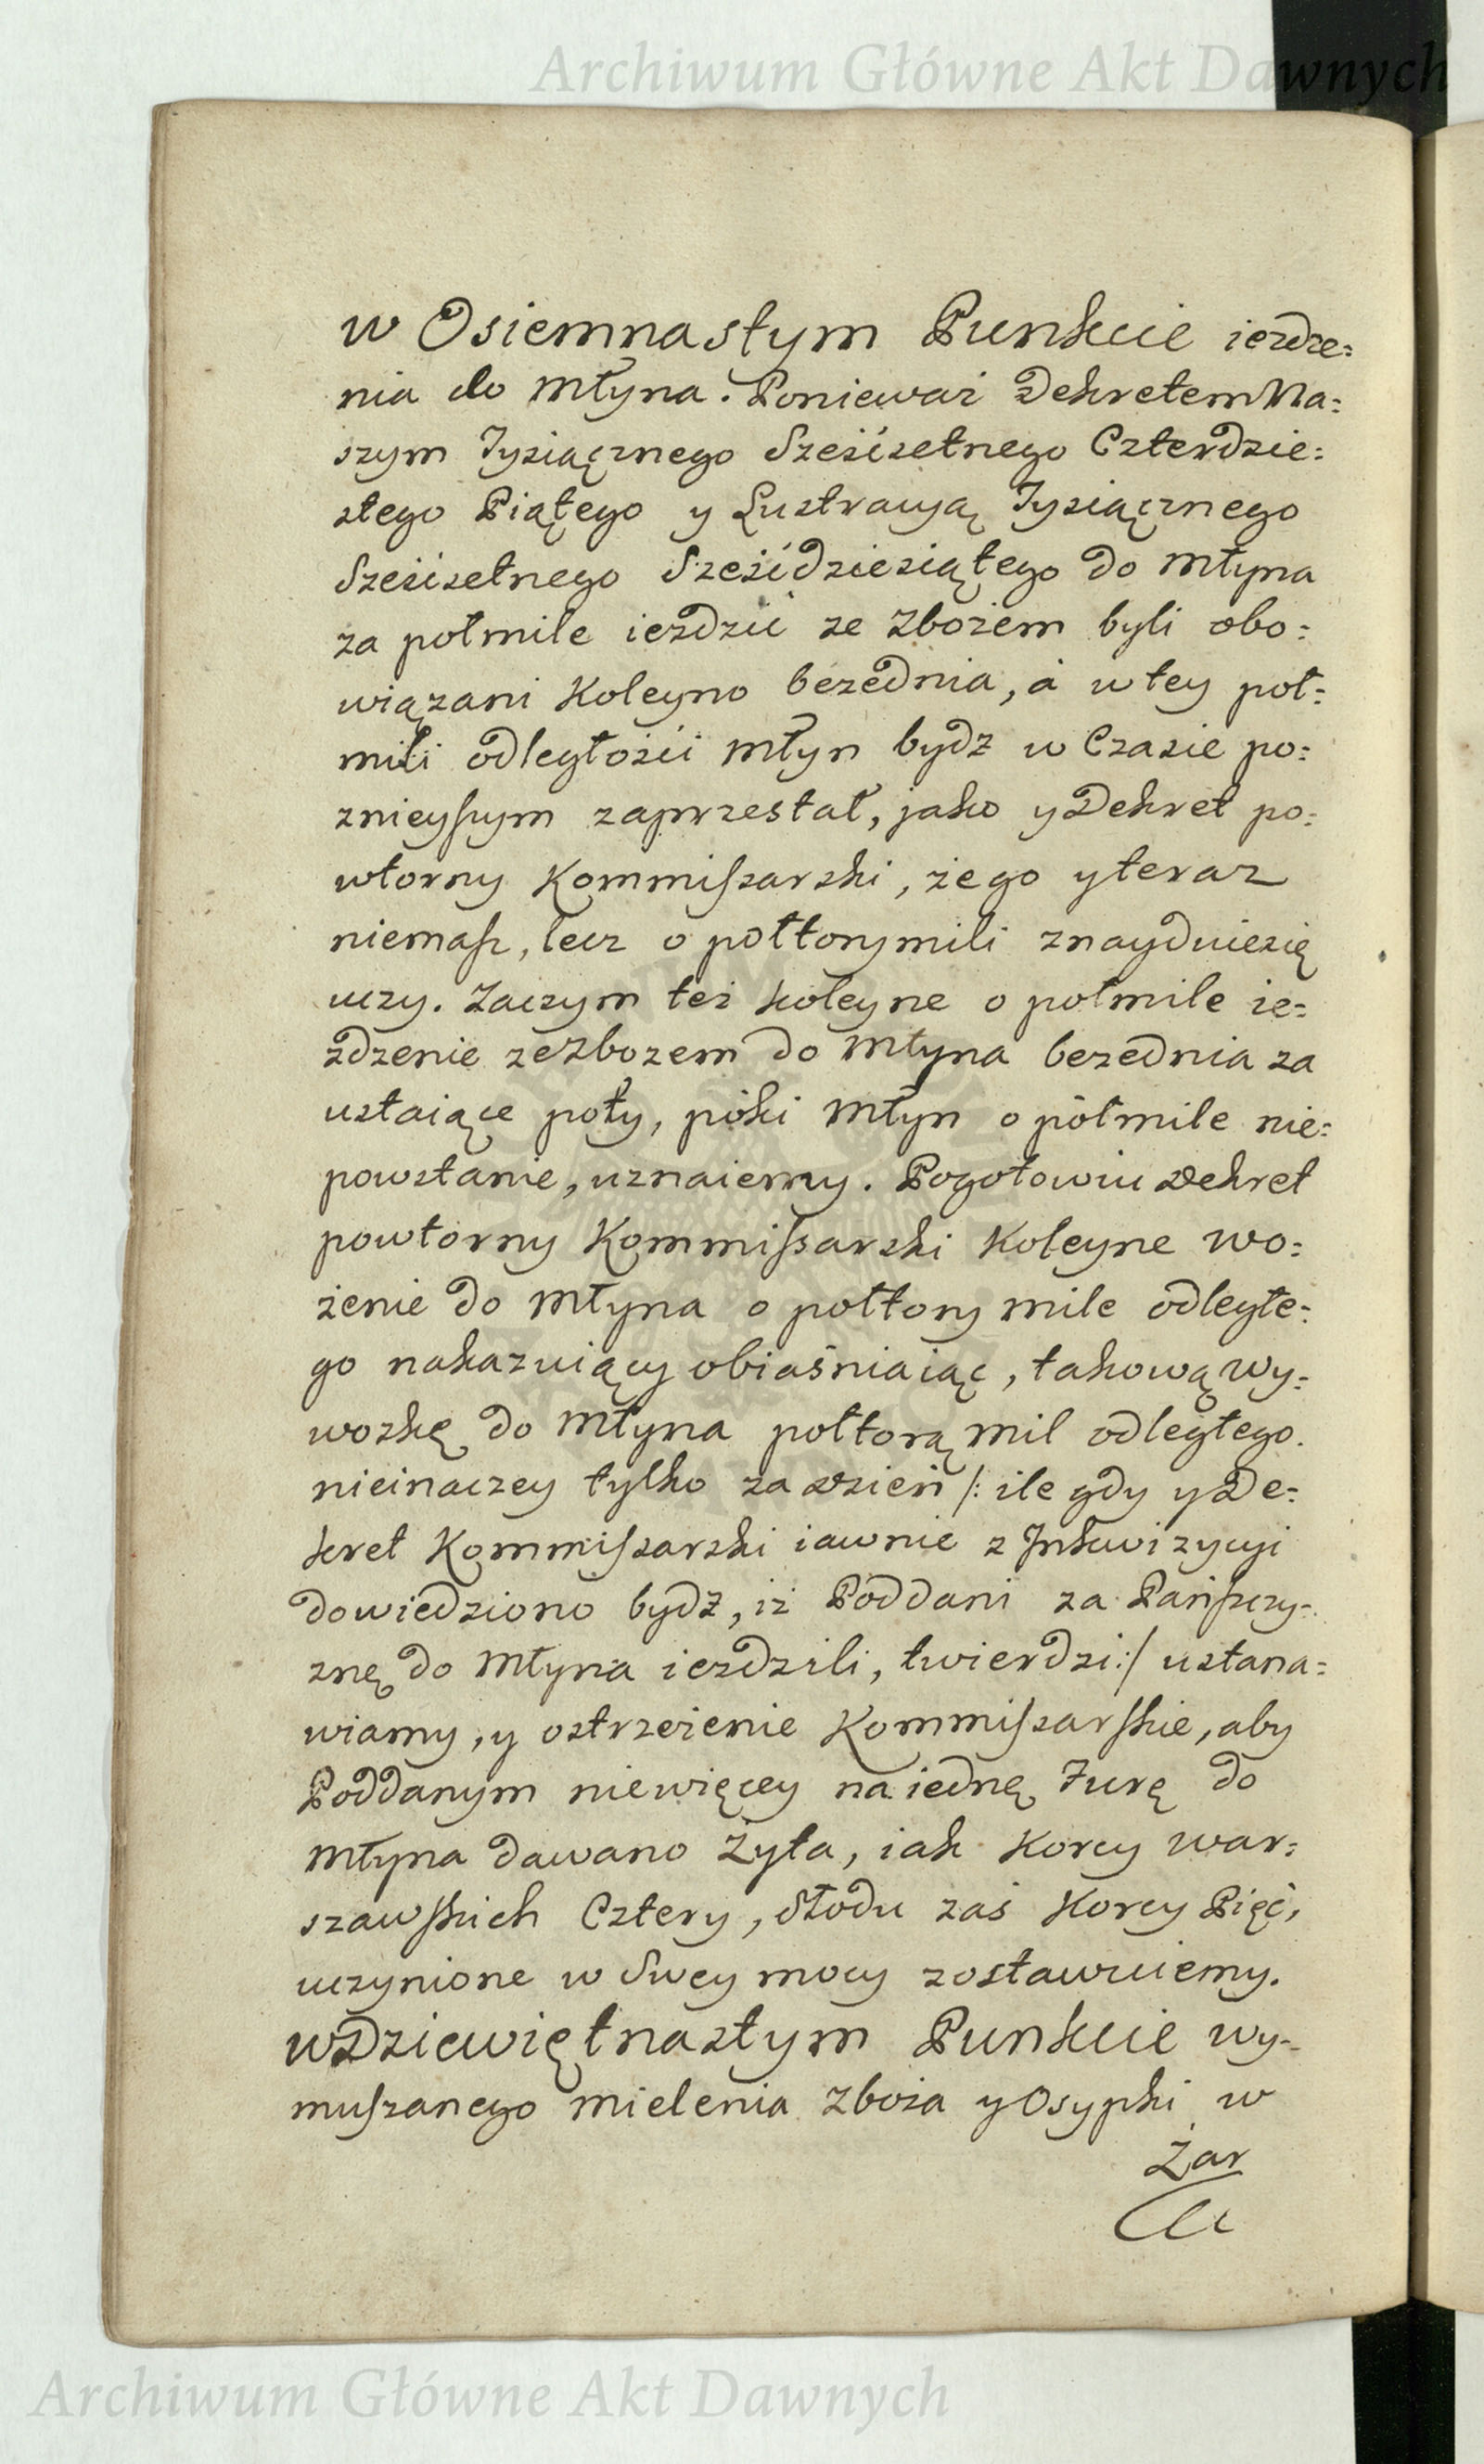 Archiwum Główne Akt Dawnych
w Osiemnastym Punkcie iezdze=
nia do Młyna. Ponieważ Dekretem Na=
szym Tysiącznego Sześćsetnego Czterdzie=
stego Piątego y Lustracyą Tysiącznego
Sześćsetnego Sześćdziesiątego do Młyna
za połmile iezdzić ze Zbożem byli obo=
wiązani Koleyno bezednia, á w tey poł=
mili odległośći Młyn bydz w Czasie po=
znieyszym zaprzestał, jako y Dekret po=
wtorny Kommissarski, że go y teraz
niemasz, lecz o połtory mili znayduie się
uczy. Zaczym też koleyne o połmile ie=
zdzenie ze Zbozem do Młyna bezednia za
ustaiące poty, póki Młyn o połmile nie=
powstanie, uznaiemy. Pogotowiu Dekret
powtorny Kommissarski Koleyne wo=
żenie do Młyna o połtory mile odległe=
go nakazuiący obiaśniaiąc, takową wy=
wozkę do Młyna połtorą mil odległego.
nieinaczey tylko za dzień /: ile gdy y De=
kret Kommissarski iawnie z Inkwizycyi
dowiedziono bydz, iż Poddani za Pańszczy=
znę do Młyna iezdzili, twierdzi :/ ustana=
wiamy, y ostrzeżenie Kommissarskie, aby
Poddanym niewięcey na iednę Furę do
Młyna dawano Żyta, iak Korcy war=
szawskich Cztery, Słodu zaś Korcy Pięć,
uczynione w Swey mocy zostawuiemy.
w Dziewiętnastym Punkcie wy=
muszanego mielenia Zboża y Osypki w
Żar
Archiwum Główne Akt Dawnych